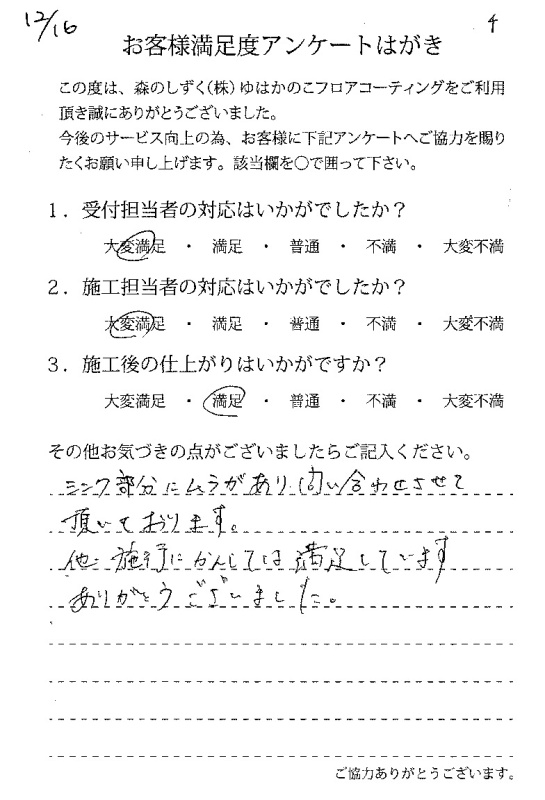 12/16
4
お客様満足度アンケートはがき
この度は、森のしずく(株)ゆはかのこフロアコーティングをご利用
頂き誠にありがとうございました。
今後のサービス向上の為、お客様に下記アンケートへご協力を賜り
たくお願い申し上げます。該当欄を○で囲って下さい。
1．受付担当者の対応はいかがでしたか？
大変満足 ・ 満足 ・ 普通 ・ 不満 ・ 大変不満
2．施工担当者の対応はいかがでしたか？
大変満足 ・ 満足 ・ 普通 ・ 不満 ・ 大変不満
3．施工後の仕上がりはいかがですか？
大変満足 ・ 満足 ・ 普通 ・ 不満 ・ 大変不満
その他お気づきの点がございましたらご記入ください。
シンク部分にムラがあり問い合わせさせて
頂いております。
他、施行にかんしては満足しています
ありがとうございました。
ご協力ありがとうございます。